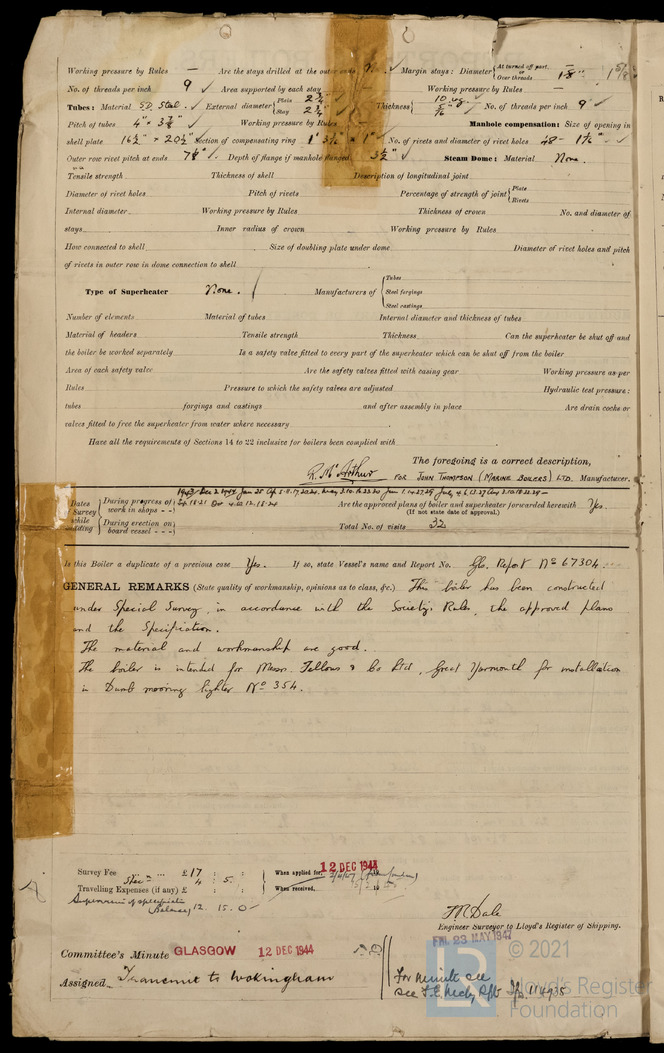 Working pressure by Rules — Are the stays drilled at the outer ends ✓ Margin stays: Diameter { At turned off part. or Over threads — 1⅞"
No. of threads per inch 9 ✓ Area supported by each stay Working pressure by Rules —
Tubes: Material S.D. Steel. ✓ External diameter { Plain 2¾" Stay 2¾" ✓ Thickness { 10 w.g. 5/16 ✓ No. of threads per inch 9 ✓
Pitch of tubes 4" × ✓ Working pressure by Rules Manhole compensation: Size of opening in
shell plate 16½" × 20½" Section of compensating ring 1" No. of rivets and diameter of rivet holes 48 - ✓
Outer row rivet pitch at ends ✓ Depth of flange if manhole flanged. 3½" ✓ Steam Dome: Material None.
Tensile strength Thickness of shell Description of longitudinal joint
Diameter of rivet holes Pitch of rivets Percentage of strength of joint { Plate Rivets
Internal diameter Working pressure by Rules Thickness of crown No. and diameter of
stays Inner radius of crown Working pressure by Rules
How connected to shell Size of doubling plate under dome Diameter of rivet holes and pitch
of rivets in outer row in dome connection to shell
Type of Superheater None. Manufacturers of { Tubes Steel forgings Steel castings
Number of elements Material of tubes Internal diameter and thickness of tubes
Material of headers Tensile strength Thickness Can the superheater be shut off and
the boiler be worked separately Is a safety valve fitted to every part of the superheater which can be shut off from the boiler
Area of each safety valve Are the safety valves fitted with easing gear Working pressure as per
Rules Pressure to which the safety valves are adjusted Hydraulic test pressure:
tubes forgings and castings and after assembly in place Are drain cocks or
valves fitted to free the superheater from water where necessary
Have all the requirements of Sections 14 to 22 inclusive for boilers been complied with
The foregoing is a correct description,
R. McArthur FOR JOHN THOMPSON (MARINE BOILERS) LTD. Manufacturer.
Dates of Survey while building
During progress of work in shops - - 1943 Dec 2 1944 Jan 25
During erection on board vessel - - -
Are the approved plans of boiler and superheater forwarded herewith Yes.
(If not state date of approval.)
Total No. of visits 32
Is this Boiler a duplicate of a previous case Yes. If so, state Vessel's name and Report No. Glo. Report No 67304.
GENERAL REMARKS (State quality of workmanship, opinions as to class, &c.) This boiler has been constructed
under Special Survey, in accordance with the Society's Rules, the approved plans
and the Specification.
The material and workmanship are good.
The boiler is intended for Messrs. Fellows & Co Ltd, Great Yarmouth for installation
in Dumb mooring lighter No 354.
Survey Fee £17 : :
Spec 4 : 5 :
Travelling Expenses (if any) £ : :
12. 15. 0
When applied for, 12 DEC 1944
When received, 19
Engineer Surveyor to Lloyd's Register of Shipping.
FRI. 23 MAY 1947
Committee's Minute GLASGOW 12 DEC 1944
Assigned Transmit to Wokingham
For minute see
© 2021
Lloyd's Register
Foundation